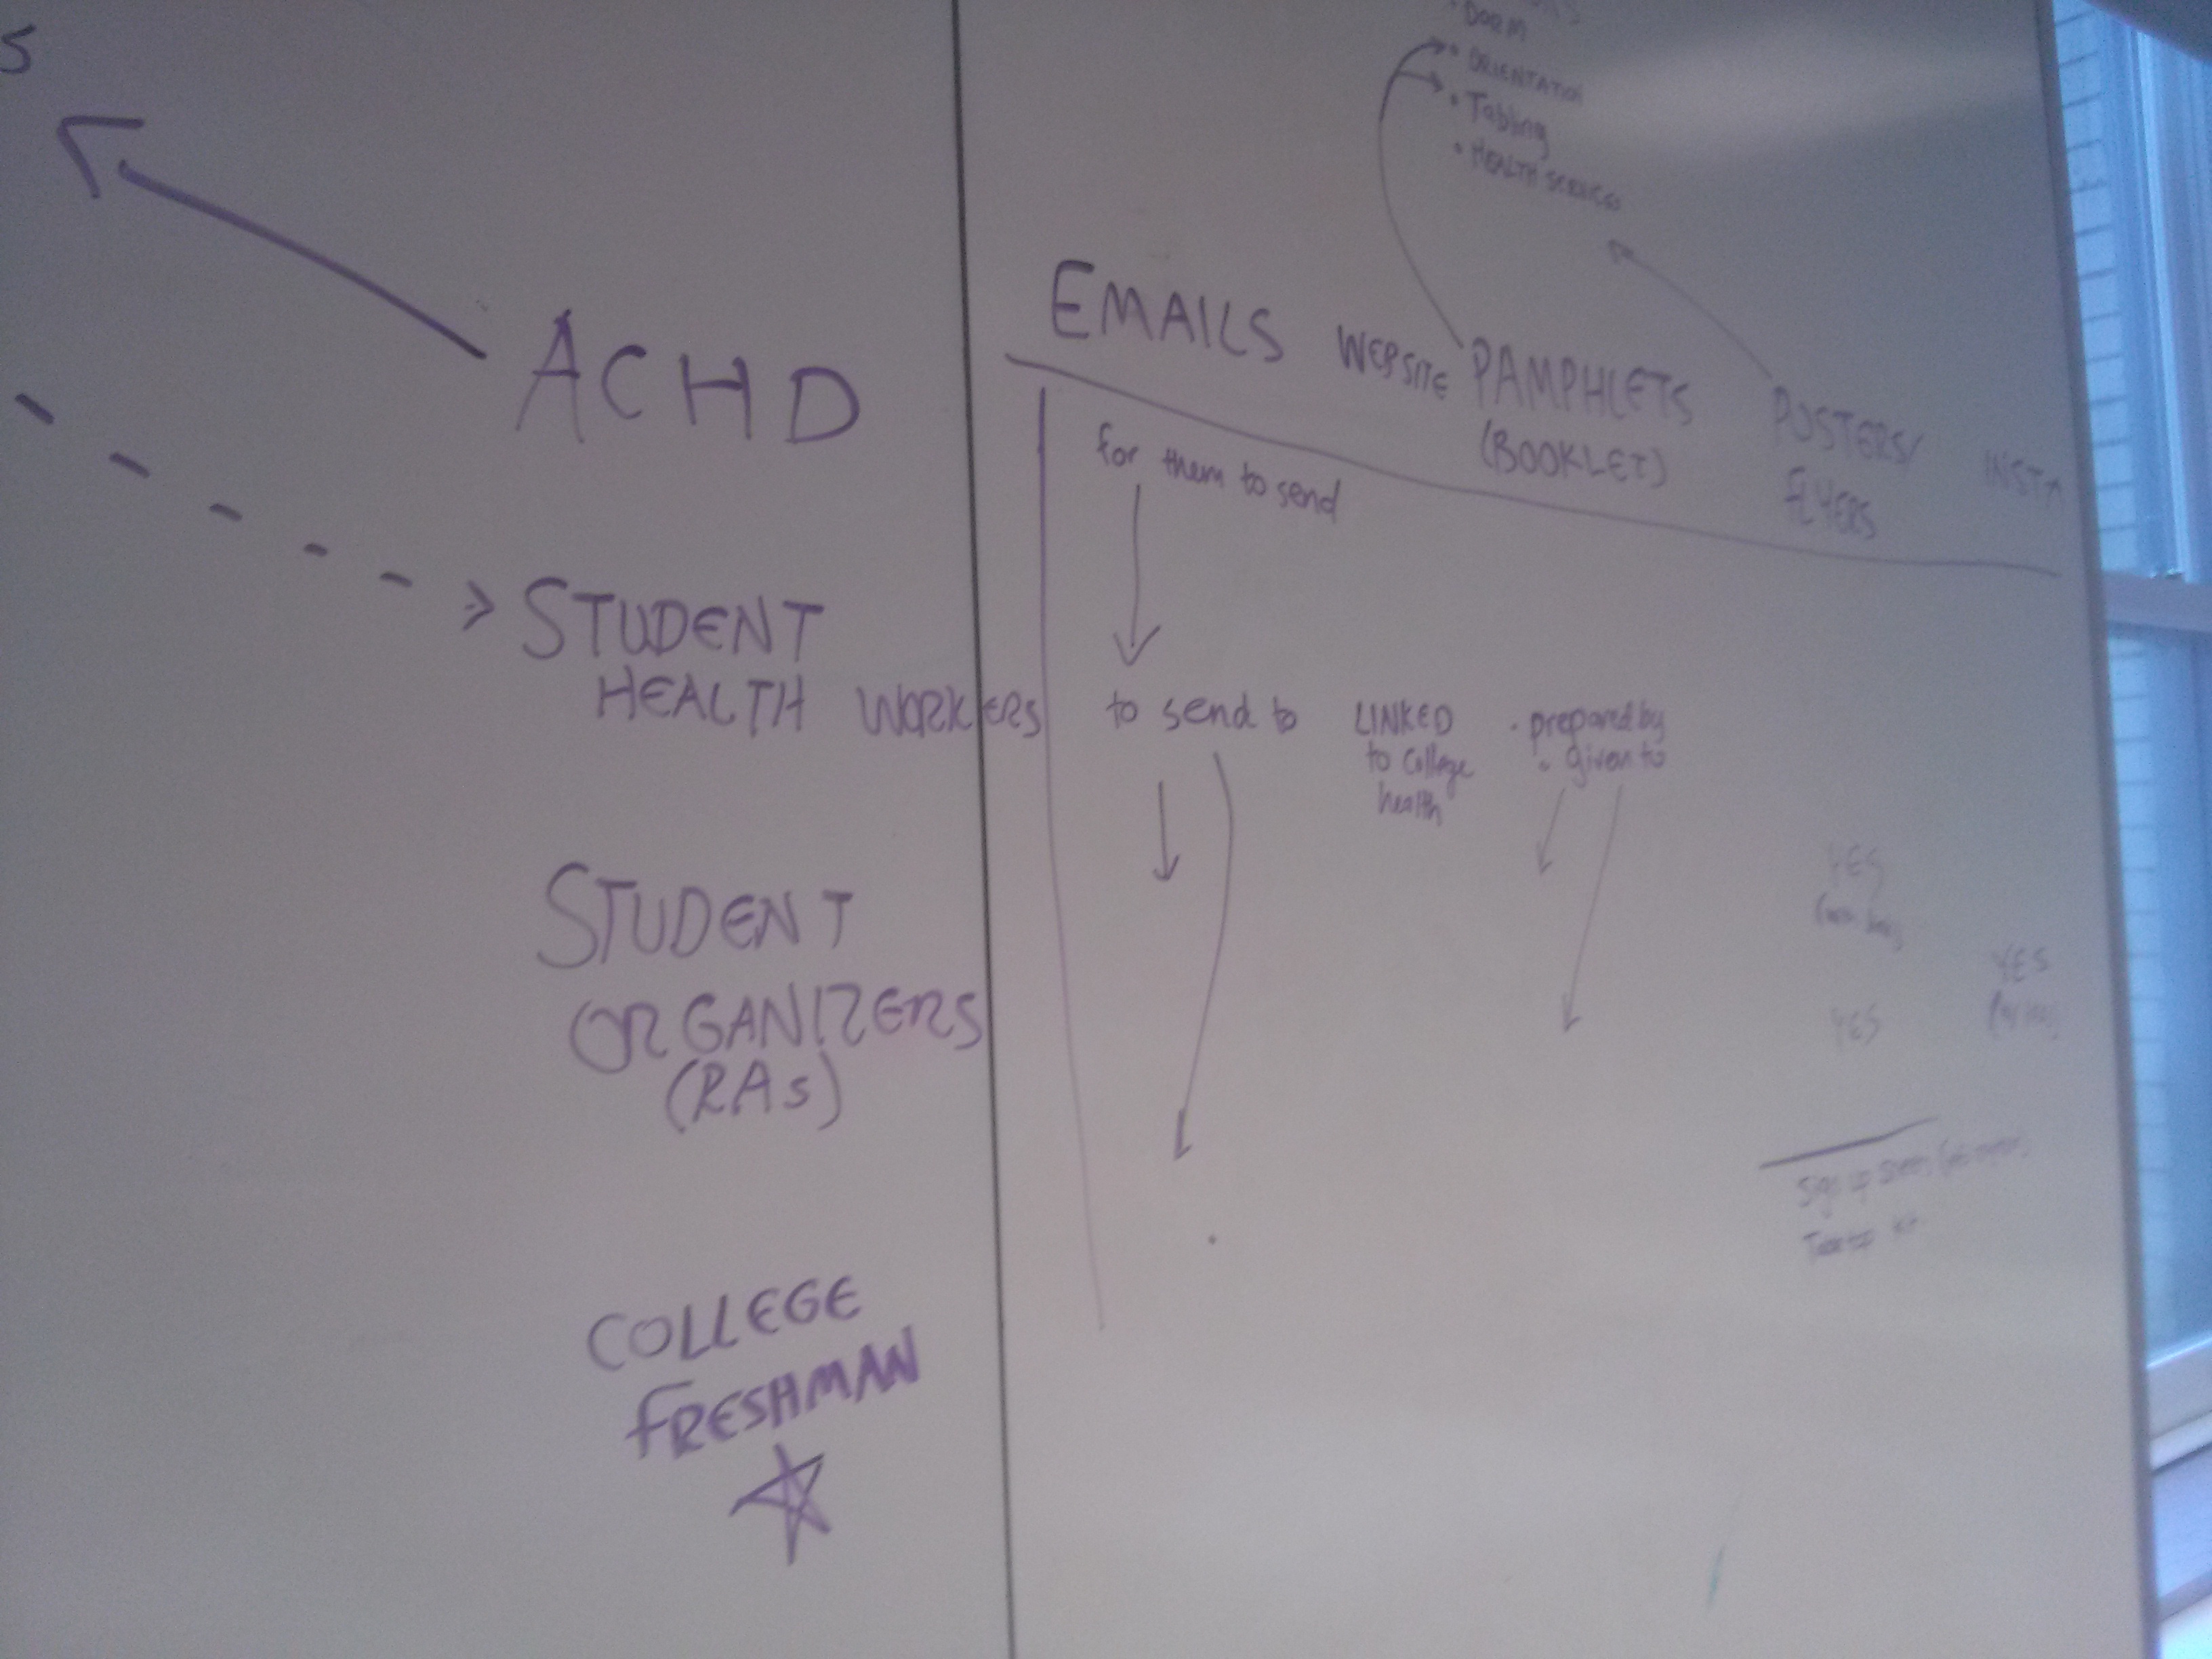 S
ACHD
STUDENT
HEALTH WORKERS
STUDENT
ORGANIZERS
(RAs)
COLLEGE
FRESHMAN
• DORM
• ORIENTATION
• Tabling
• HEALTH SERVICES
EMAILS WEBSITE PAMPHLETS
(BOOKLET)
POSTERS/
FLYERS
INSTA
for them to send
to send to
LINKED
to College
health
• prepared by
• given to
YES
YES
YES
Sign up sheets